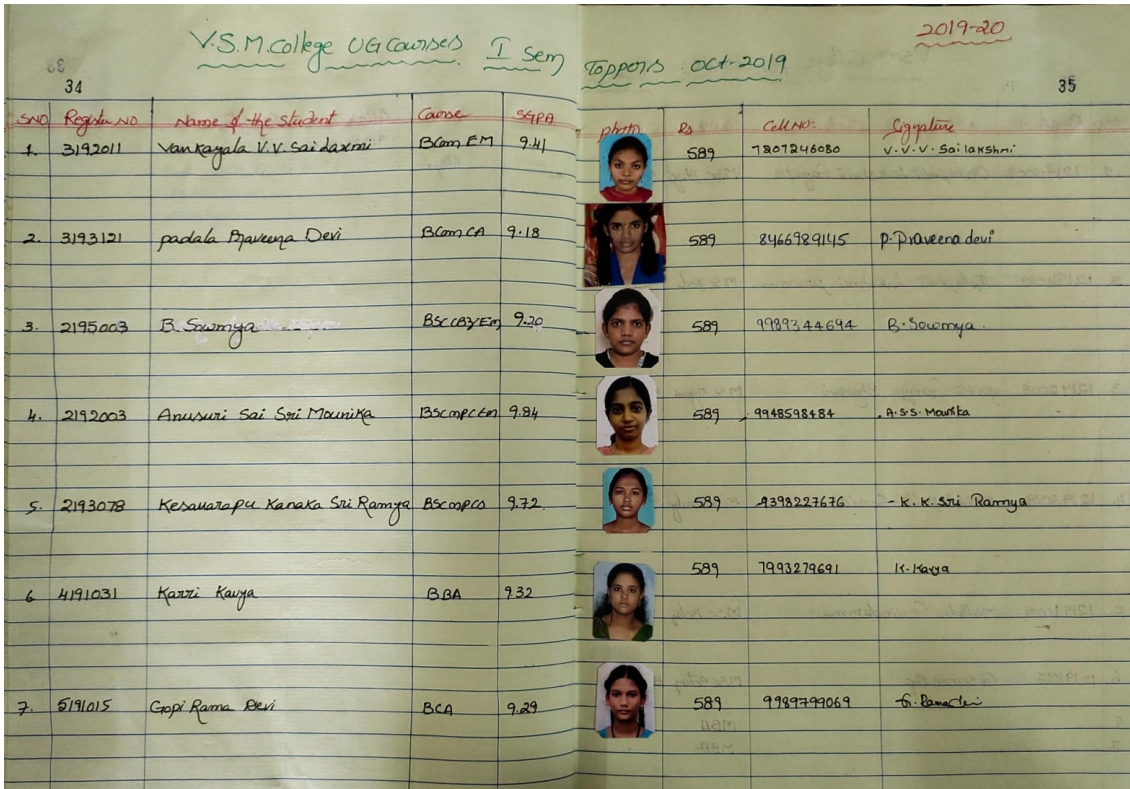 V.S.M.College UG Courses I Sem Toppers Oct-2019
2019-20
34
35
SNO Register NO Name of the Student Course SGPA photo Rs Cell NO: Signature
1. 3192011 Vankayala V.V. Sai laxmi BCom EM 9.41 589 7207246080 V.V.V. Sailakshmi
2. 3193121 padala Praveena Devi BCom CA 9.18 589 8466989145 P. Praveena devi
3. 2195003 B. Sowmya BSc CBZ Em 9.20 589 9989344694 B. Sowmya.
4. 2192003 Anusuri Sai Sri Mounika BSc mpc Em 9.84 589 9948598484 A.S.S. Mounika
5. 2193078 Kesavarapu Kanaka Sri Ramya BSc mpcs 9.72. 589 9398227676 - K. K. Sri Ramya
6 4191031 Karri Kavya BBA 9.32 589 7993279691 K. Kavya
7. 5191015 Gopi Rama Devi BCA 9.29 589 9989799069 G. Ramadevi